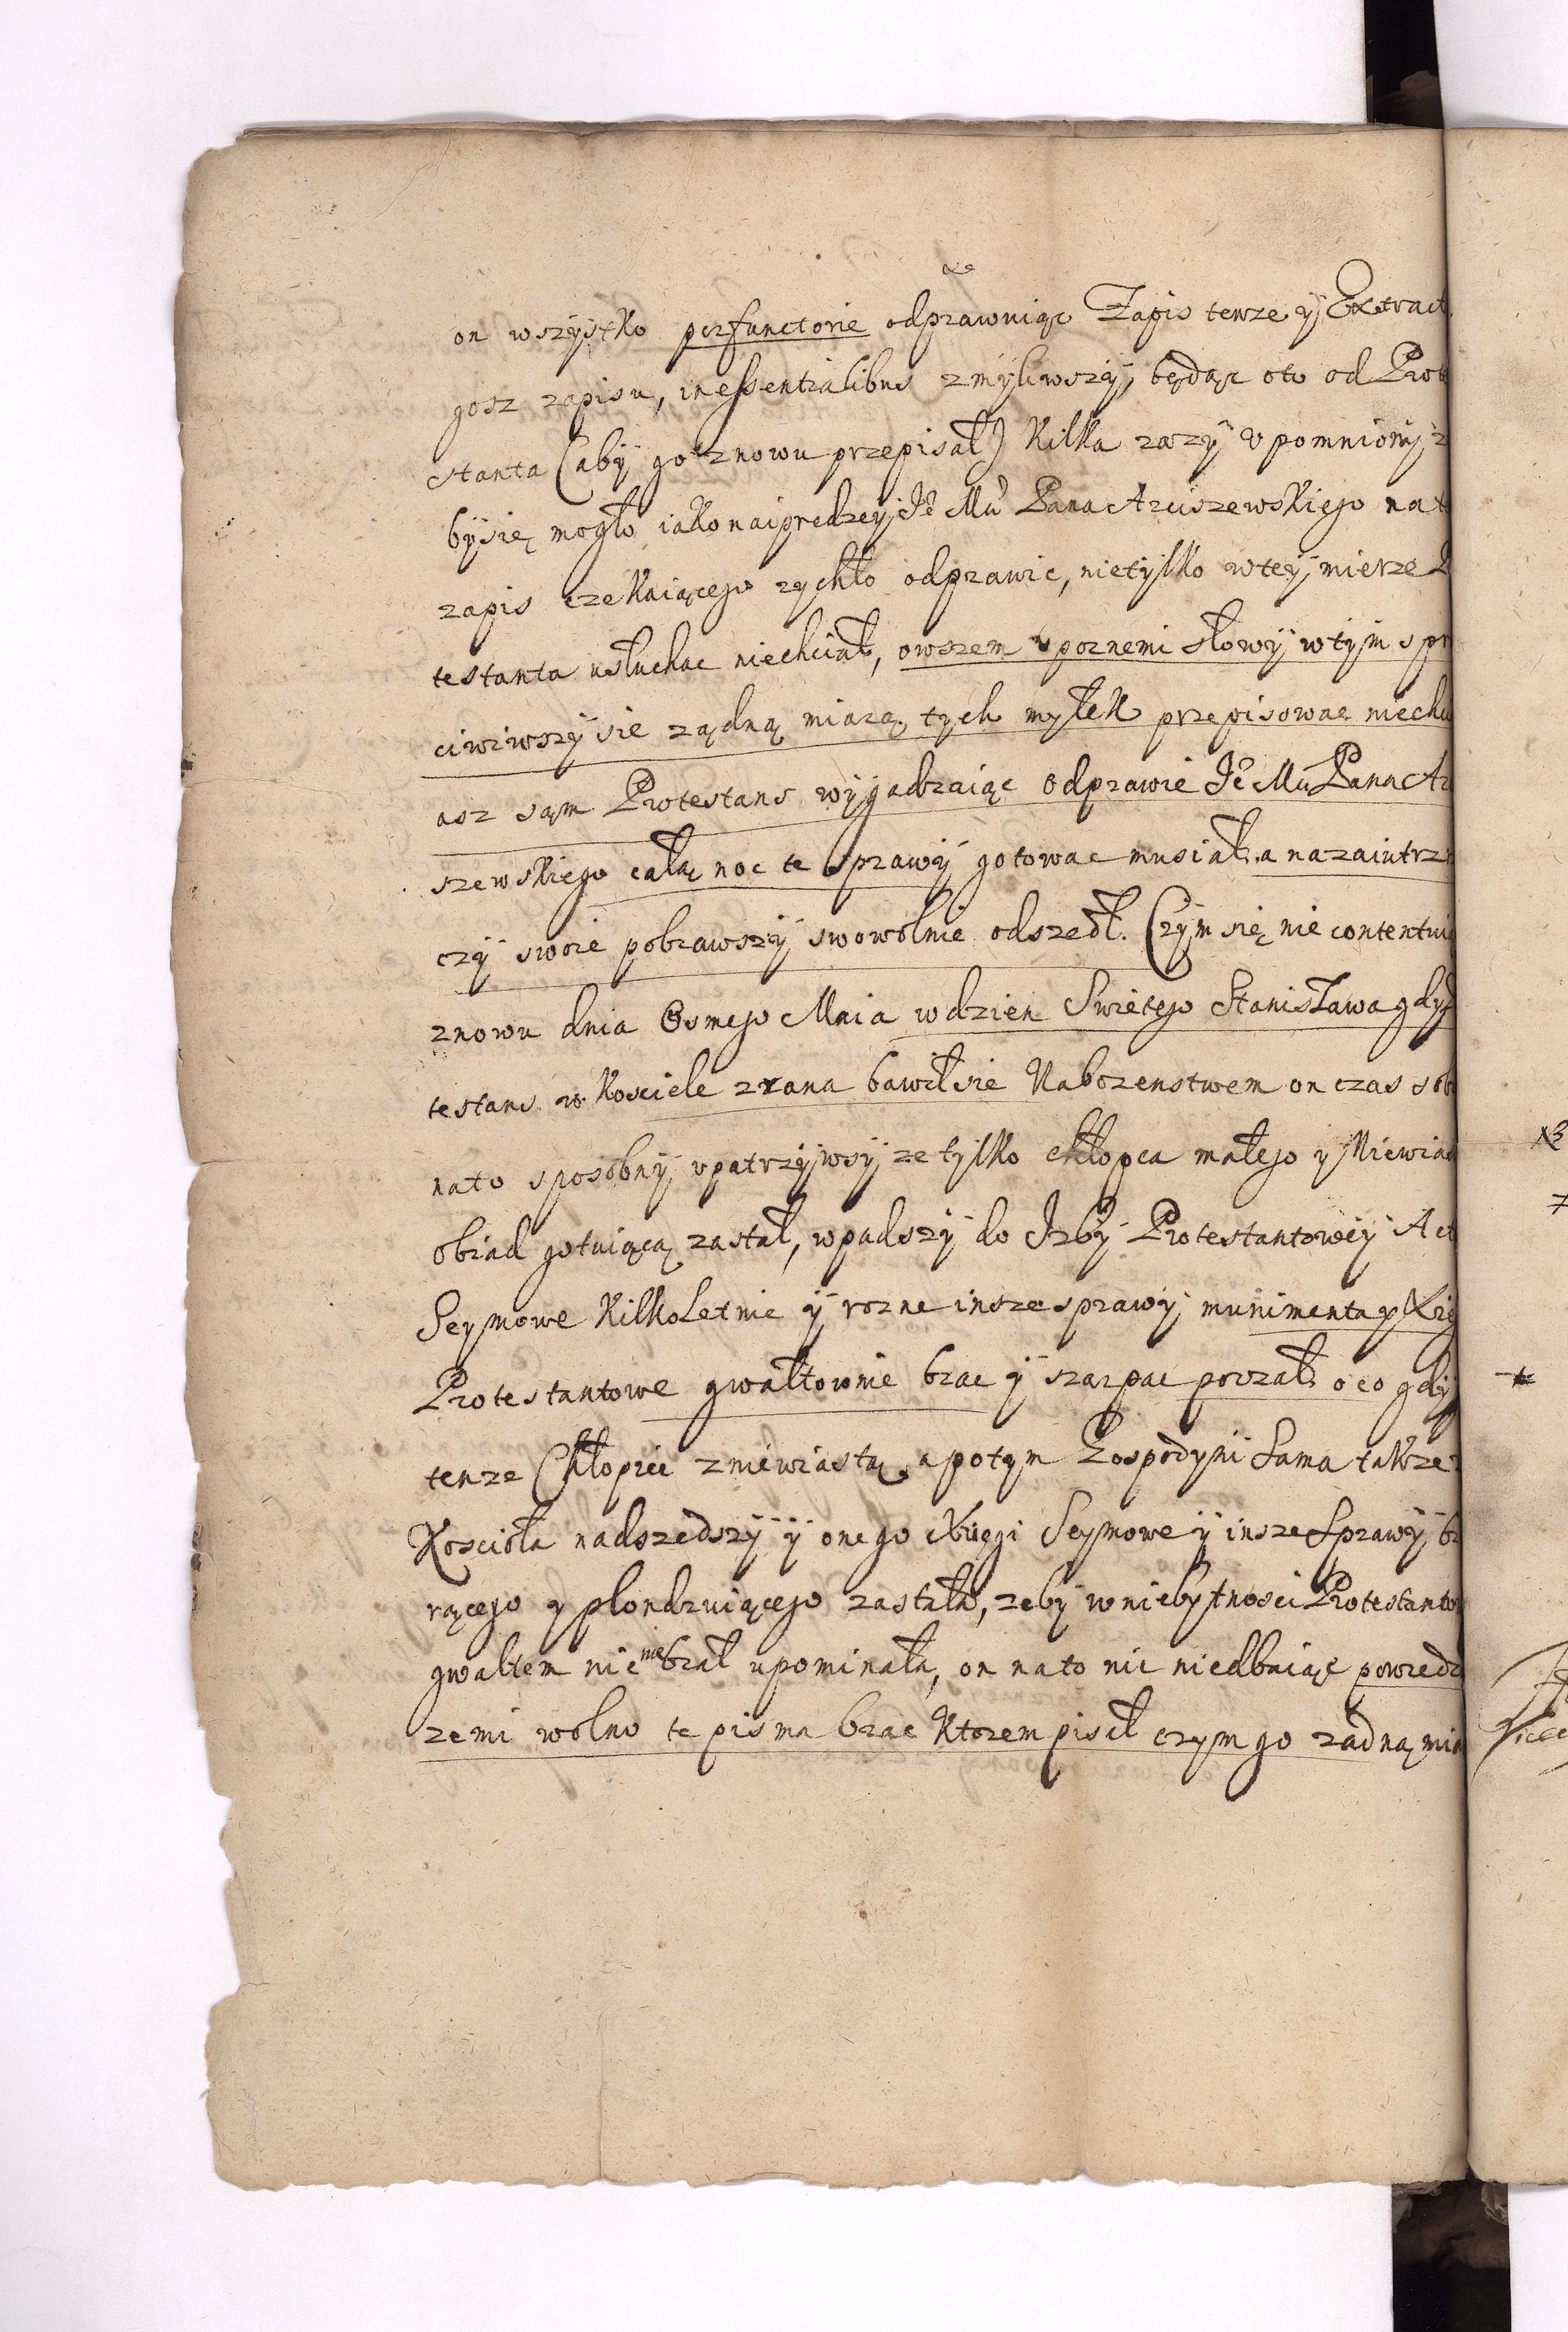 on wszystko perfunctorie odprawuiąc Zapis tenze y Extract
gosz zapisu, inessentialibus zmyliwszy, będąc oto od Prote
stanta (aby go znowu przepisał) Kilka razy vpomniony z
bysię mogło iako naipredzey Je° Mci Pana Arciszewskiego na t
zapis czekaiącego rychło odprawic, nietylko wtey mierze P
testanta usłuchac niechciał, owszem vpornemi słowy wtym spr
ciwiwszysie ządną miarą, tych myłek przepisowac niechc
asz sąm Protestans wygadzaiąc odprawie Je° Mci Pana Ar
szewskiego całą noc te sprawy gotowac musiał, a nazaiutrz
czy swoie pobrawszy swowolnie odszedł. Czym się nie contentui
znowu dnia Osmego Maia wdzien Swietego Stanisława gdy
testans w Kosciele zrana bawiłsie Nabozenstwem on czas sob
nato sposobny vpatrzywsy ze tylko chłopca małego y Niewias
obiad gotuiącą zastał, wpadszy do Izby Protestantowey Act
Seymowe KilkoLetnie y rozne insze sprawy munimenta y Xię
Protestantowe gwałtownie brac y szarpac poczał, oco gdy
tenze Chłopiec zniewiastą, apotym Gospodyni Sama takze z
Koscioła nadszedszy y onego Xięgi Seymowe y insze Sprawy bi
rącego y plondruiącego zastała, zeby wniebytnosci Protestanto
gwaltem nic nie brał upominała, on nato nic niedbaiąc powiedz
zemi wolno te pisma brac Ktorem pisał czym go zadną mia